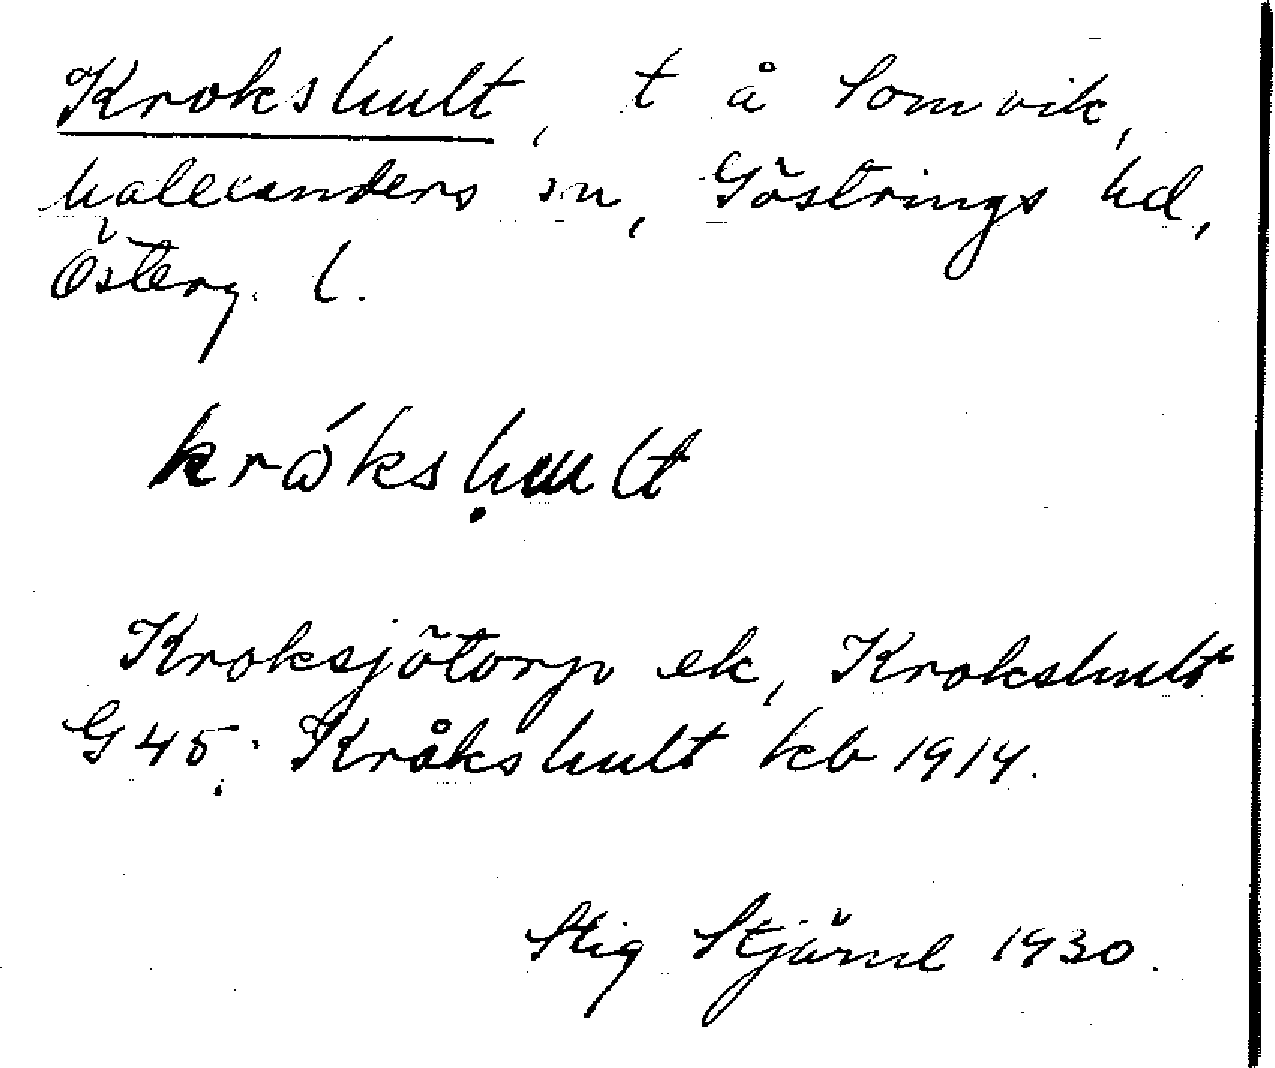 Krokshult, t å Somvik,
Malexanders sn, Göstrings hd,
Österg. l.
krώksḥult
Kroksjötorp ek, Krokshult
G 45. Kråkshult kb 1914.
Stig Stjärne 1930.